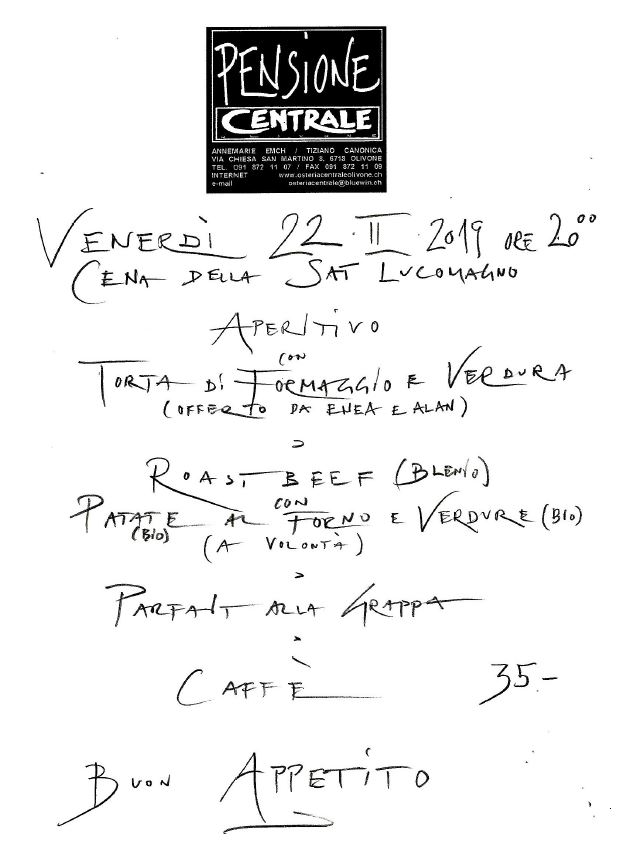 PENSIONE
CENTRALE
ANNEMARIE EMCH / TIZIANO CANONICA
VIA CHIESA SAN MARTINO 8, 6718 OLIVONE
TEL. 091 872 11 07 / FAX 091 872 11 09
INTERNET www.osteriacentraleolivone.ch
e-mail osteriacentrale@bluewin.ch
VENERDÌ 22.II.2019 ORE 20⁰⁰
CENA DELLA SAT LUCOMAGNO
APERITIVO
CON
TORTA DI FORMAGGIO E VERDURA
(OFFERTO DA ENEA E ALAN)
ROAST BEEF (BLENIO)
CON
PATATE AL FORNO E VERDURE (BIO)
(BIO) (A VOLONTÀ)
PARFAIT ALLA GRAPPA
CAFFÈ 35.-
BUON APPETITO